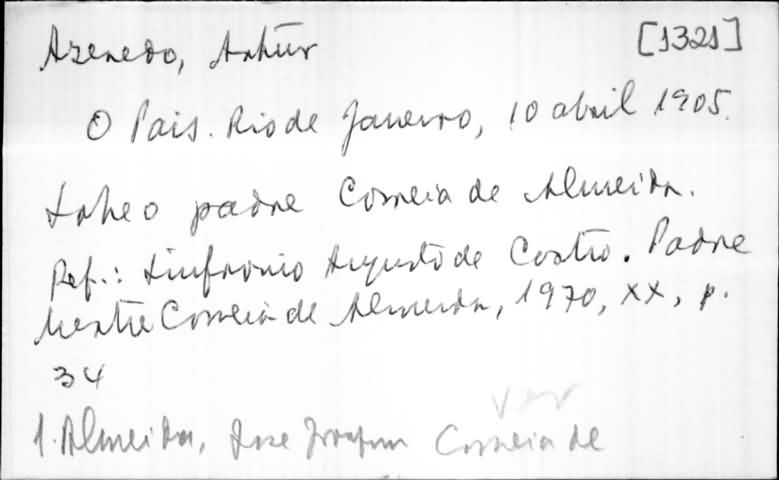 Azevedo, Artur [1321]
O Pais. Rio de Janeiro, 10 abril 1905.
Sobre o padre Correia de Almeida.
Ref.: Sinfronio Augusto de Castro. Padre
Mestre Correia de Almeida, 1970, XX, p.
34
ver
1. Almeida, Jose Joaquim Correia de